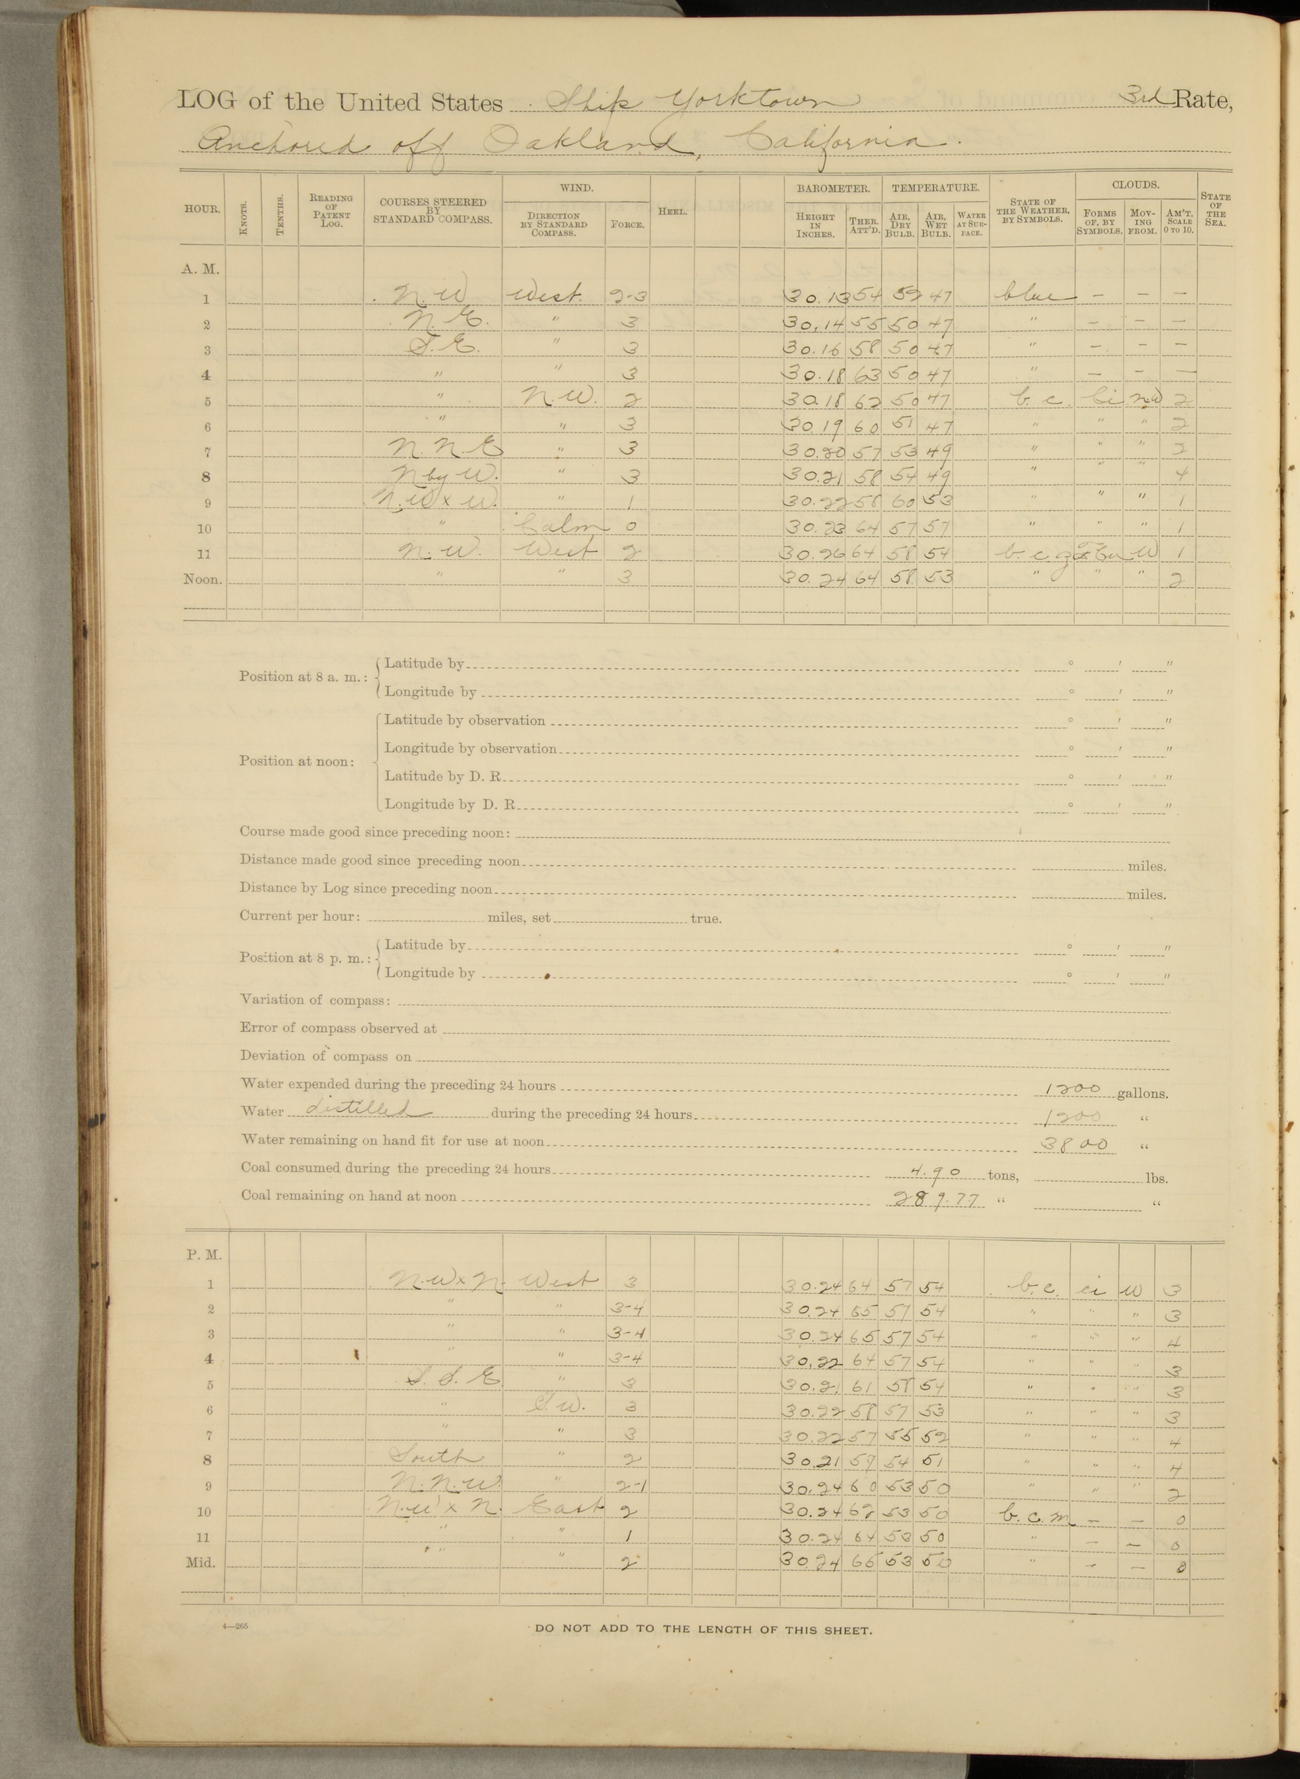 LOG of the United States Ship Yorktown 3rd Rate,
Anchored off Oakland, California.
HOUR. KNOTS. TENTHS. READING OF PATENT LOG. COURSES STEERED BY STANDARD COMPASS. WIND. DIRECTION BY STANDARD COMPASS. FORCE. HEEL. BAROMETER. HEIGHT IN INCHES. THER. ATT'D. TEMPERATURE. AIR, DRY BULB. AIR, WET BULB. WATER AT SURFACE. STATE OF THE WEATHER, BY SYMBOLS. CLOUDS. FORMS OF, BY SYMBOLS. MOVING FROM. AM'T, SCALE 0 TO 10. STATE OF THE SEA.
A. M.
1 N.W. West 2-3 30.13 54 52 47 blue — — —
2 N.E. " 3 30.14 55 50 47 " — — —
3 S.E. " 3 30.16 58 50 47 " — — —
4 " " 3 30.18 63 50 47 " — — —
5 " N.W. 2 30.18 62 50 47 b.c. Ci NW 2
6 " " 3 30.19 60 51 47 " " " 2
7 N.N.E " 3 30.20 57 53 49 " " " 2
8 N by W. " 3 30.21 58 54 49 " " " 4
9 N.W x W. " 1 30.22 58 60 53 " " " 1
10 " Calm 0 30.23 64 57 57 " " " 1
11 N.W. West 2 30.26 64 58 54 b.c.g W 1
Noon. " " 3 30.24 64 58 53 " " " 2
Position at 8 a. m.: Latitude by ° ' "
Longitude by ° ' "
Position at noon: Latitude by observation ° ' "
Longitude by observation ° ' "
Latitude by D. R. ° ' "
Longitude by D. R. ° ' "
Course made good since preceding noon:
Distance made good since preceding noon miles.
Distance by Log since preceding noon miles.
Current per hour: miles, set true.
Position at 8 p. m.: Latitude by ° ' "
Longitude by ° ' "
Variation of compass:
Error of compass observed at
Deviation of compass on
Water expended during the preceding 24 hours 1200 gallons.
Water distilled during the preceding 24 hours 1200 "
Water remaining on hand fit for use at noon 3800 "
Coal consumed during the preceding 24 hours 4.90 tons, lbs.
Coal remaining on hand at noon 289.77 " "
P. M.
1 N.W x N. West 3 30.24 64 57 54 b.c. ci W 3
2 " " 3-4 30.24 65 57 54 " " " 3
3 " " 3-4 30.24 65 57 54 " " " 4
4 " " 3-4 30.22 64 57 54 " " " 3
5 S.S.E " 3 30.21 61 58 54 " " " 3
6 " S.W. 3 30.22 58 57 53 " " " 3
7 " " 3 30.22 57 55 52 " " " 4
8 South " 2 30.21 59 54 51 " " " 4
9 N.N.W. " 2-1 30.24 60 53 50 " " " 2
10 N.W x N. East 2 30.24 62 53 50 b.c.m — — 0
11 " " 1 30.24 64 53 50 " — — 0
Mid. " " 2 30.24 66 53 50 " — — 0
4—265
DO NOT ADD TO THE LENGTH OF THIS SHEET.